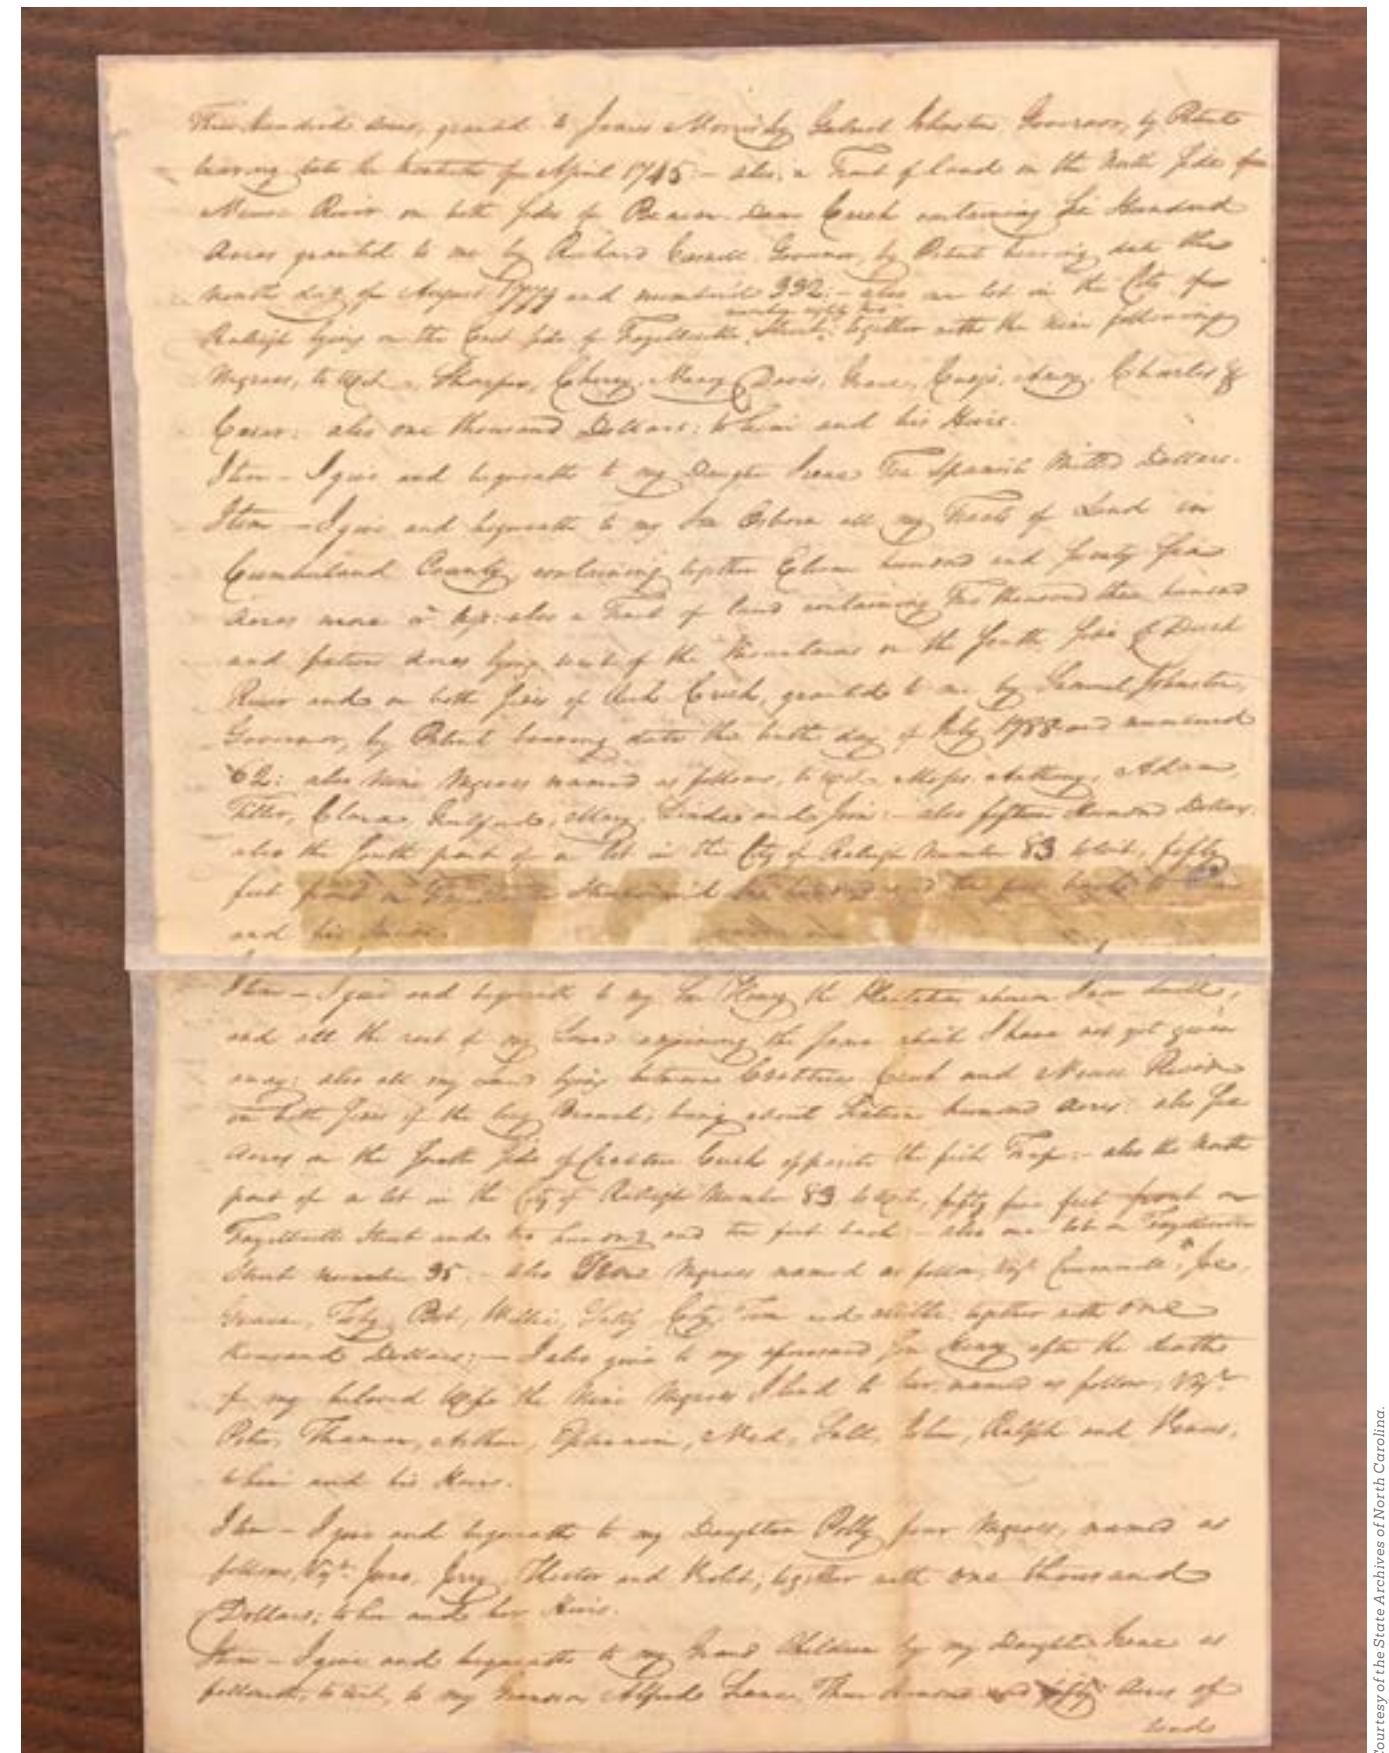 Three hundred Acres, granted to James Morris by Gabriel Johnston Governor, by Patent
bearing date the April 1745 — also, a Tract of land on the North side of
Neuse River on both sides of Beaver dam Creek containing Six Hundred
Acres granted to me by Richard Caswell Governor, by Patent bearing date the
day of August 1779 and numbered 332: — also one lot in the City of
Raleigh lying on the East side of Fayetteville Street; together with the nine following
Negroes, to wit, Sharper, Cherry, Nancy, Davis, Charles &
also one thousand Dollars: to him and his Heirs.
Item — I give and bequeath to my Daughter Irene Ten Spanish Mill'd Dollars.
Item — I give and bequeath to my Son Osborn all my Tracts of Land in
Cumberland County, containing together Eleven hundred and
Acres more or less: also a Tract of land containing Two thousand three hundred
and Acres lying west of the Mountains on the South side of Duck
River and on both sides of Creek, granted to me by Samuel Johnston,
Governor, by Patent bearing date the tenth day of July 1788 and numbered
62: also Nine Negroes named as follows, to wit, Anthony, Adam,
Clara, Guilford, Mary, Linda and — also fifteen hundred Dollars:
also the South part of a lot in the City of Raleigh Number 83 to wit, fifty
feet front on Street and two hundred and ten feet back to him
and his heirs.
Item — I give and bequeath to my Son Henry the Plantation whereon I now dwell,
and all the rest of my Land adjoining the same which I have not yet given
away: also all my Land lying between Crabtree Creek and Neuse River
on both sides of the Branch; being about Sixteen hundred Acres: also
Acres on the South side of Crabtree Creek opposite the fish Trap: — also the North
part of a lot in the City of Raleigh Number 83 to wit, fifty five feet front on
Fayetteville Street and two hundred and ten feet back — also one lot on Fayetteville
Street number 95 — also Negroes named as follow, Viz. Joe,
Toby, Bob, Willie, Tom and together with one
thousand Dollars; — I also give to my aforesaid Son Henry after the death
of my beloved Wife the Nine Negroes I lend to her, named as follow, Viz.
Peter, Thamer, Arthur, Ephraim, Ned, Ralph and Venus,
to him and his Heirs.
Item — I give and bequeath to my Daughter Polly four Negroes, named as
follows, Viz. Jerry, Hector and Violet, together with one thousand
Dollars; to her and her Heirs.
Item — I give and bequeath to my Grand Children by my Daughter Irene as
followeth, to wit, to my Grandson Alfred Three hundred Acres of
land
Courtesy of the State Archives of North Carolina.